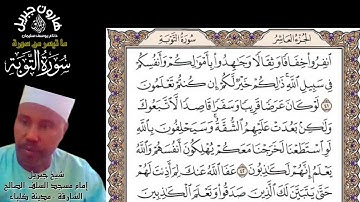 الجزء العاشر
سورة التوبة
ٱنفِرُوا۟ خِفَافًا وَثِقَالًا وَجَٰهِدُوا۟ بِأَمْوَٰلِكُمْ وَأَنفُسِكُمْ
فِى سَبِيلِ ٱللَّهِ ذَٰلِكُمْ خَيْرٌ لَّكُمْ إِن كُنتُمْ تَعْلَمُونَ
٤١ لَوْ كَانَ عَرَضًا قَرِيبًا وَسَفَرًا قَاصِدًا لَّٱتَّبَعُوكَ
وَلَٰكِنۢ بَعُدَتْ عَلَيْهِمُ ٱلشُّقَّةُ وَسَيَحْلِفُونَ بِٱللَّهِ
لَوِ ٱسْتَطَعْنَا لَخَرَجْنَا مَعَكُمْ يُهْلِكُونَ أَنفُسَهُمْ وَٱللَّهُ
يَعْلَمُ إِنَّهُمْ لَكَٰذِبُونَ ٤٢ عَفَا ٱللَّهُ عَنكَ لِمَ أَذِنتَ لَهُمْ
حَتَّىٰ يَتَبَيَّنَ لَكَ ٱلَّذِينَ صَدَقُوا۟ وَتَعْلَمَ ٱلْكَٰذِبِينَ
هارون جبريل
ما تيسر من سورة
سورة التوبة
شيخ جبريل
إمام مسجد السلف الصالح
الشارقة . مدينة كلباء